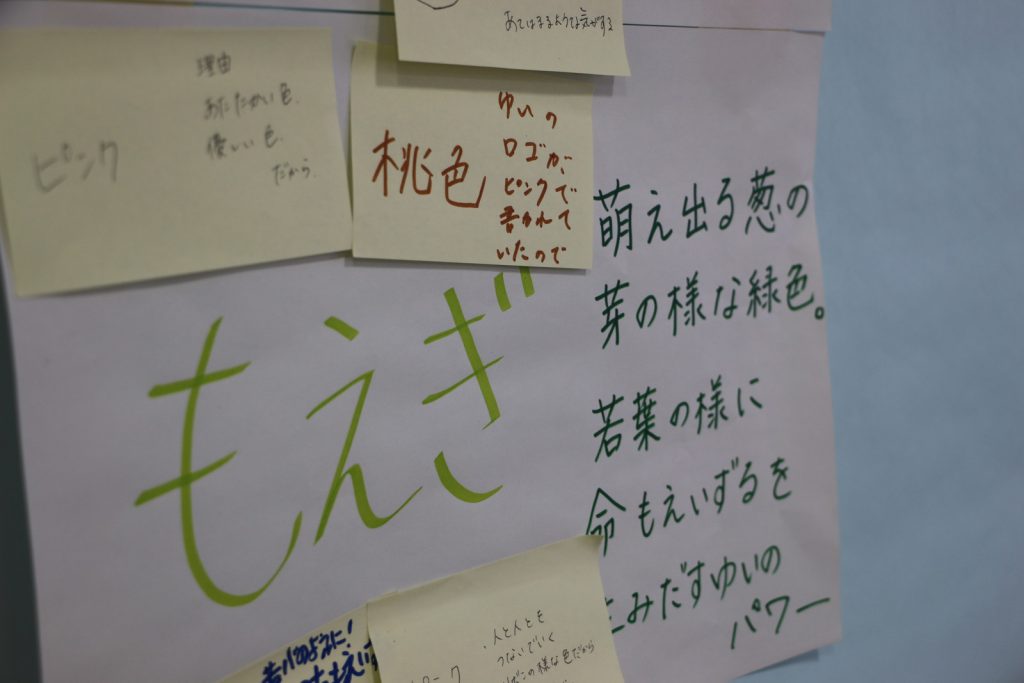 あてはまるような気がする
ピンク
理由
あたたかい色。
優しい色
だから。
桃色
ゆいの
ロゴが、
ピンクで
書かれて
いたので
もえぎ
萌え出る葱の
芽の様な緑色。
若葉の様に
命もえいずるを
みだすゆいの
パワー
人と人とを
つないでいく
の様な色だから